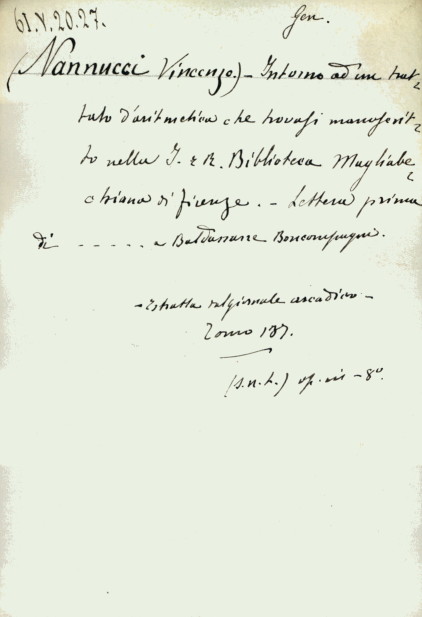 61.V.20.27.
Gen.
(Nannucci Vincenzo.) – Intorno ad un trat-
tato d'aritmetica che trovasi manoscrit-
to nella I. e R. Biblioteca Magliabe-
chiana di Firenze. – Lettera prima
di ----- a Baldassarre Boncompagni.
– Estratta dal giornale arcadico –
Tomo 137.
(s.n.t.) op. in – 8°